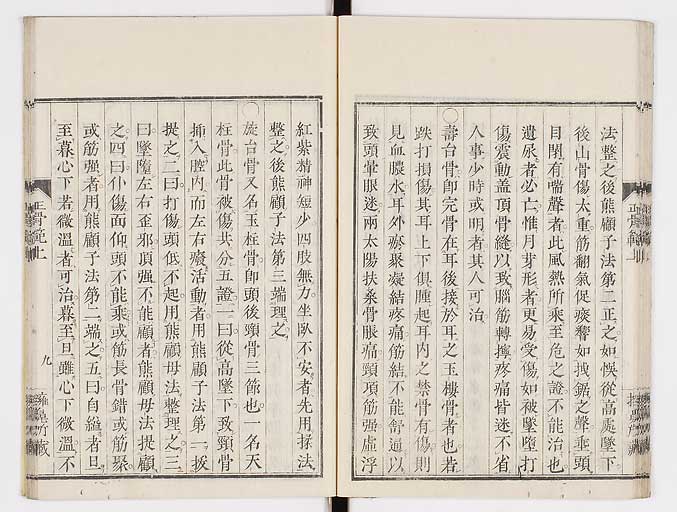 法整之後熊顧子法第二正之如悞從高處墜下
後山骨傷太重筋翻氣促痰響如拽鋸之聲垂頭
目閉有喘聲者此風熱所乘至危之證不能治也
遺尿者必亡惟月芽形者更易受傷如被墜墮打
傷震動蓋頂骨縫以致腦筋轉擰疼痛昏迷不省
人事少時或明者其人可治
〇壽台骨即完骨在耳後接於耳之玉樓骨者也若
跌打損傷其耳上下俱腫起耳內之禁骨有傷則
見血膿水耳外瘀聚凝結疼痛筋結不能舒通以
致頭暈眼迷兩太陽扶桑骨眼痛頸項筋强虛浮
紅紫精神短少四肢無力坐臥不安者先用揉法
整之後熊顧子法第三端理之
〇旋台骨又名玉柱骨即頭後頸骨三節也一名天
柱骨此骨被傷共分五證一曰從高墜下致頸骨
挿入腔內而左右癈活動者用熊顧子法第一拔
提之二曰打傷頭低不起用熊顧母法整理之三
曰墜墮左右歪邪項强不能顧者熊顧母法提顧
之四曰仆傷面仰頭不能乘或筋長骨錯或筋聚
或筋强者用熊顧子法第二端之五曰自縊者旦
至暮心下若微溫者可治暮至旦雖心下微溫不
正骨範上
九